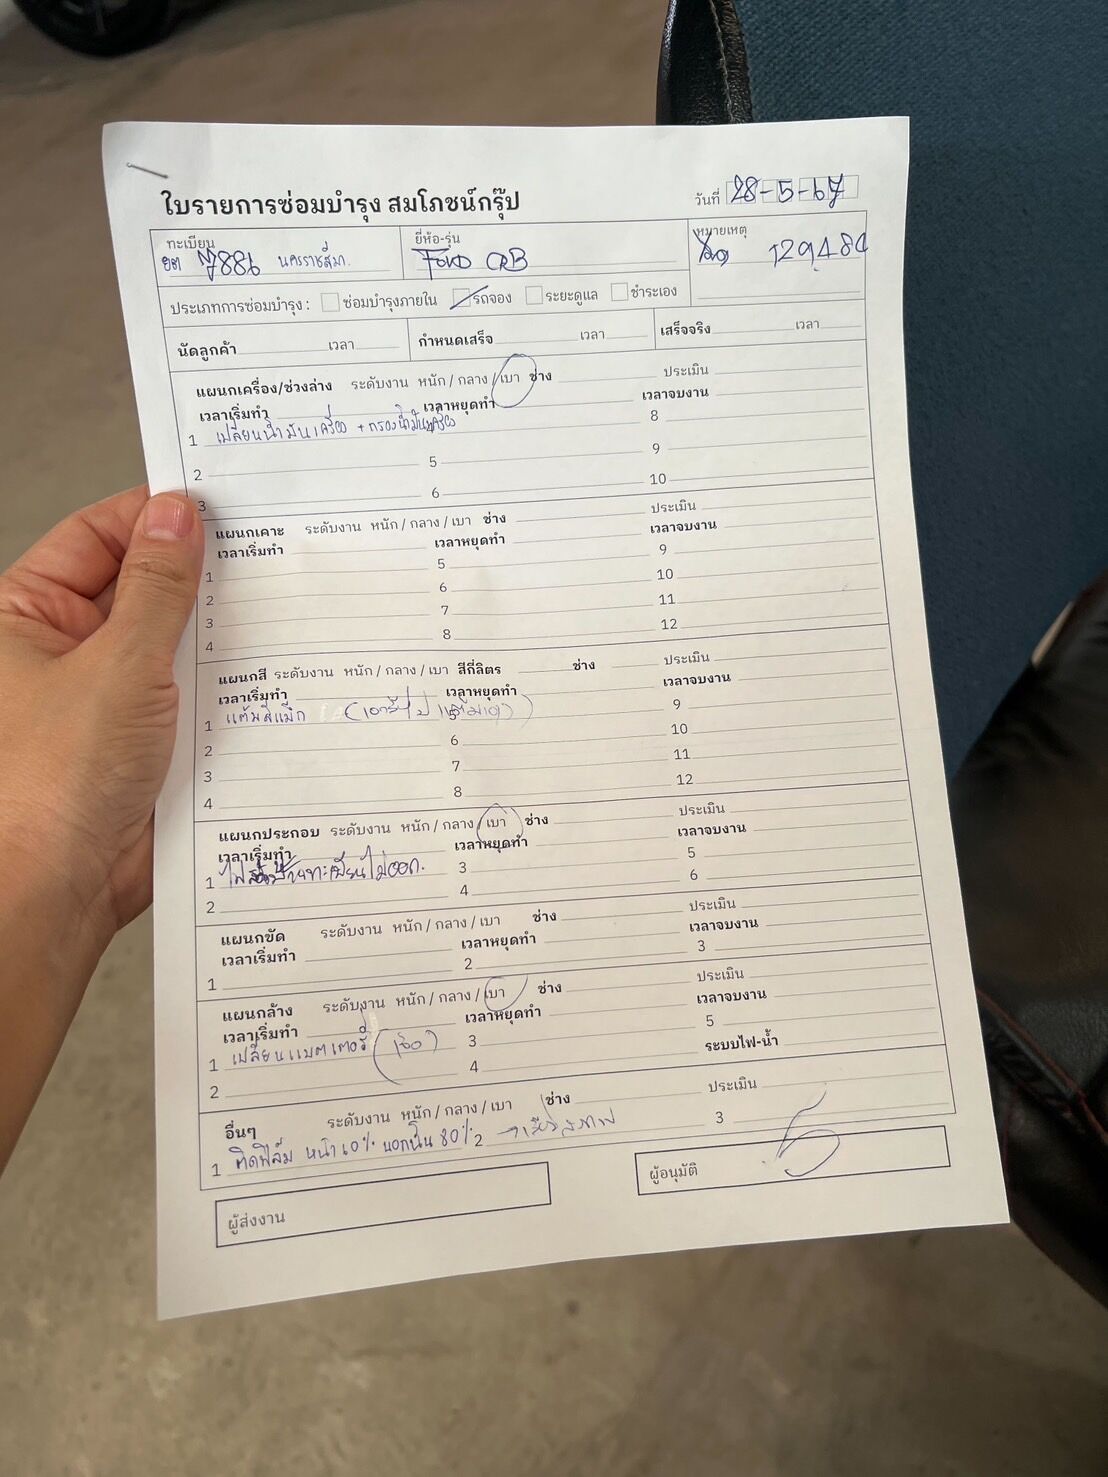 ใบรายการซ่อมบำรุง สมโภชน์กรุ๊ป
วันที่ 28-5-67
ทะเบียน ยี่ห้อ-รุ่น หมายเหตุ
886 นครราชสีมา 129484
ประเภทการซ่อมบำรุง : ซ่อมบำรุงภายใน รถจอง ระยะดูแล ชำระเอง
นัดลูกค้า เวลา กำหนดเสร็จ เวลา เสร็จจริง เวลา
แผนกเครื่อง/ช่วงล่าง ระดับงาน หนัก / กลาง / เบา ช่าง ประเมิน
เวลาเริ่มทำ เวลาหยุดทำ เวลาจบงาน
1 เปลี่ยนน้ำมันเครื่อง + กรองน้ำมันเครื่อง 8
2 5 9
3 6 10
แผนกเคาะ ระดับงาน หนัก / กลาง / เบา ช่าง ประเมิน
เวลาเริ่มทำ เวลาหยุดทำ เวลาจบงาน
1 5 9
2 6 10
3 7 11
4 8 12
แผนกสี ระดับงาน หนัก / กลาง / เบา สีกี่ลิตร ช่าง ประเมิน
เวลาเริ่มทำ เวลาหยุดทำ เวลาจบงาน
1 แต้มสีแม็ก 5 9
2 6 10
3 7 11
4 8 12
แผนกประกอบ ระดับงาน หนัก / กลาง / เบา ช่าง ประเมิน
เวลาเริ่มทำ เวลาหยุดทำ เวลาจบงาน
1 ป้ายทะเบียนไม่ออก. 3 5
2 4 6
แผนกขัด ระดับงาน หนัก / กลาง / เบา ช่าง ประเมิน
เวลาเริ่มทำ เวลาหยุดทำ เวลาจบงาน
1 2 3
แผนกล้าง ระดับงาน หนัก / กลาง / เบา ช่าง ประเมิน
เวลาเริ่มทำ เวลาหยุดทำ เวลาจบงาน
1 เปลี่ยนแบตเตอรี่ 3 5
2 4 ระบบไฟ-น้ำ
อื่นๆ ระดับงาน หนัก / กลาง / เบา ช่าง ประเมิน
1 ติดฟิล์ม หน้า 60% นอกนั้น 80% 2 3
ผู้ส่งงาน ผู้อนุมัติ